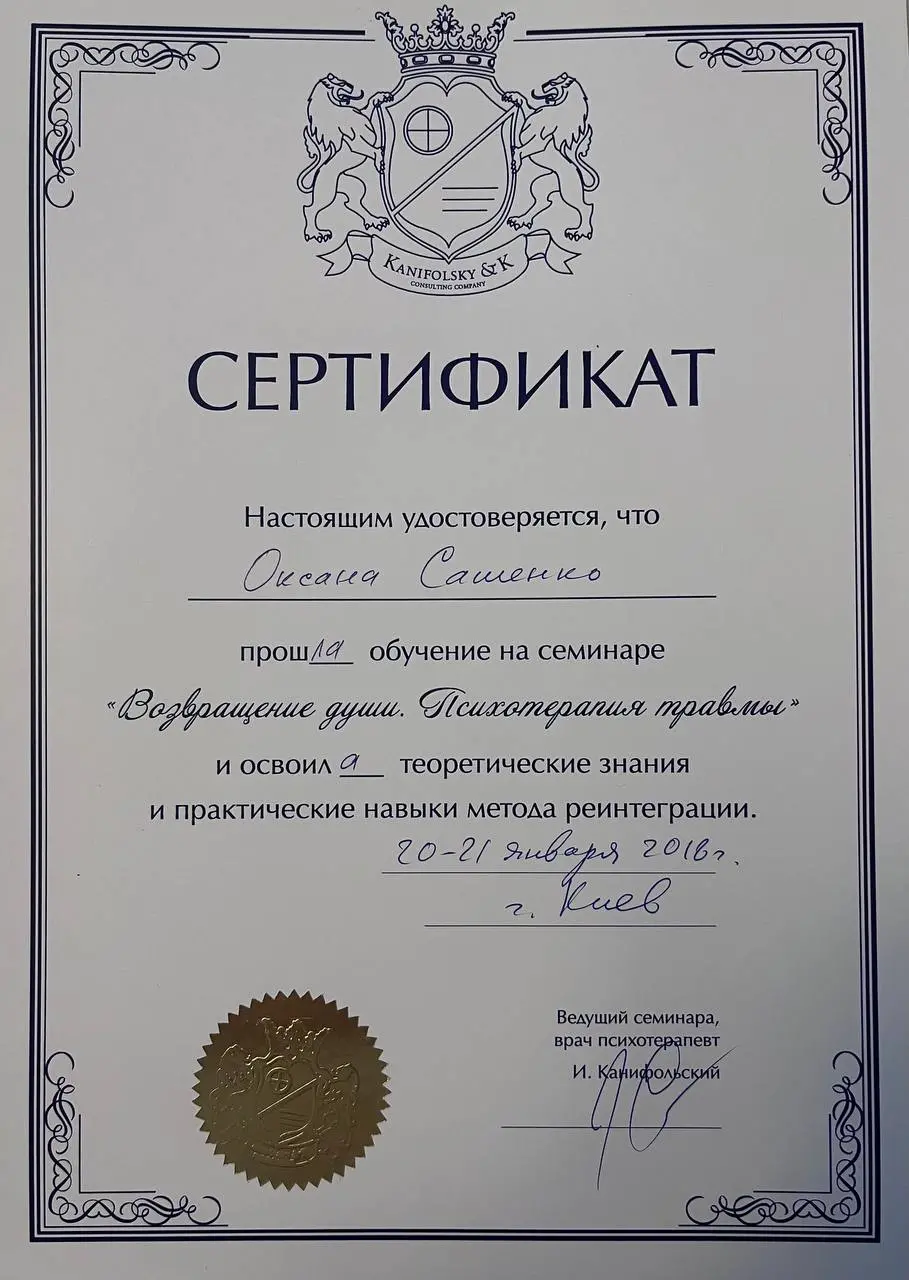 KANIFOLSKY & K
CONSULTING COMPANY
СЕРТИФИКАТ
Настоящим удостоверяется, что
Оксана Сашенко
прошла обучение на семинаре
«Возвращение души. Психотерапия травмы»
и освоила теоретические знания
и практические навыки метода реинтеграции.
20-21 января 2018г.
г. Киев
Ведущий семинара,
врач психотерапевт
И. Канифольский